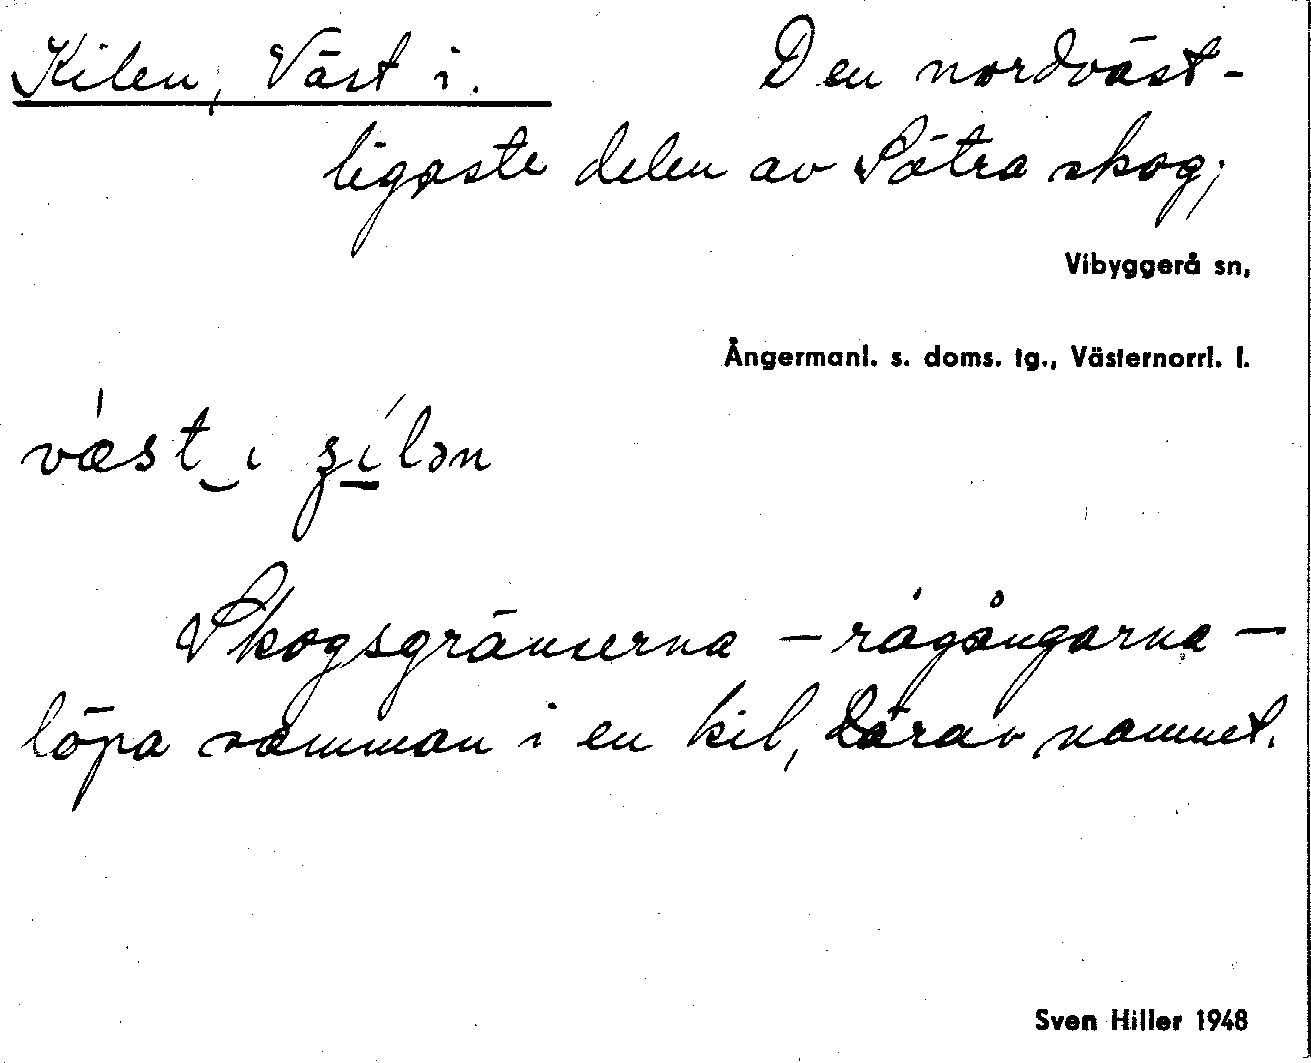 Kilen, Väst i. Den nordväst-
ligaste delen av Sätra skog;
Vibyggerå sn,
Ångermanl. s. doms. tg., Västernorrl. l.
væst i ʂilən
Skogsgränserna – rågångarna –
löpa samman i en kil, därav namnet.
Sven Hiller 1948